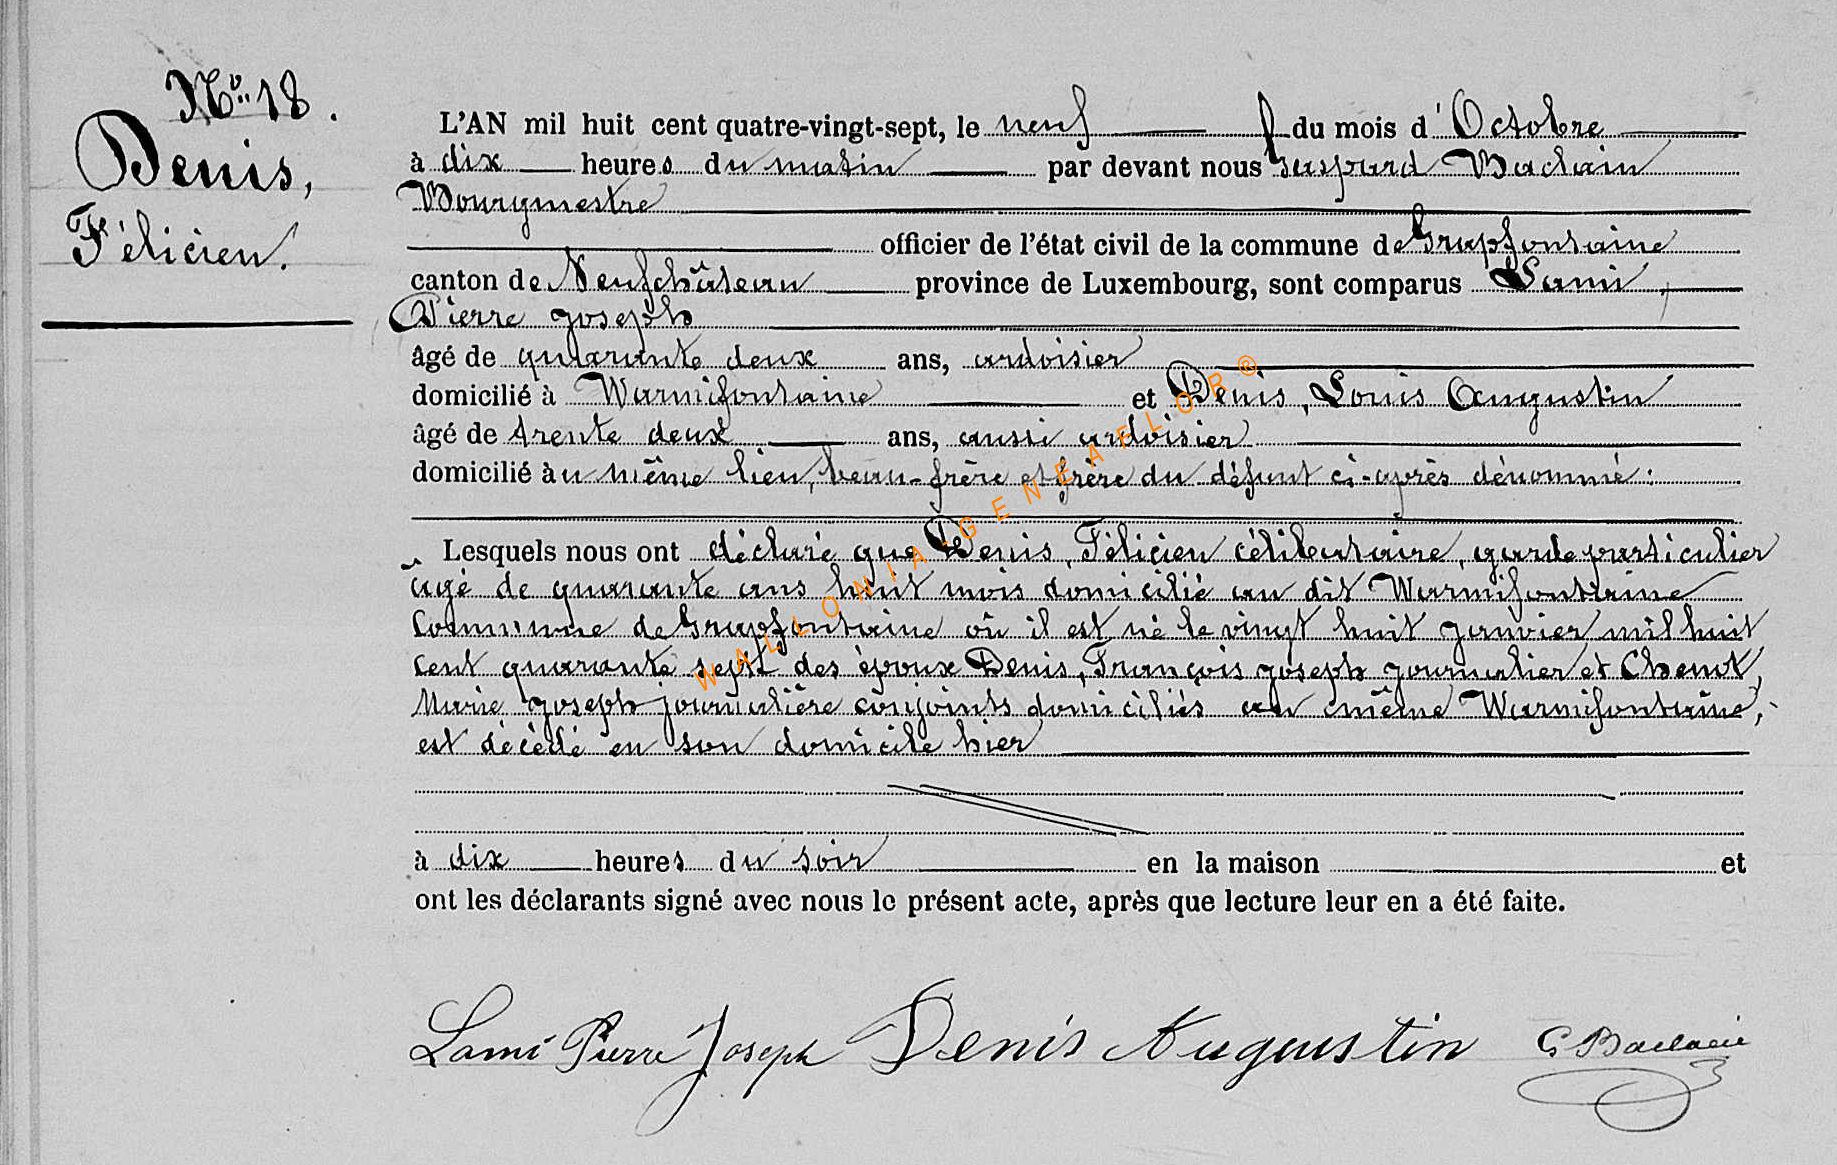 No 18.
Denis,
Félicien.
L'AN mil huit cent quatre-vingt-sept, le neuf du mois d'Octobre
à dix heures du matin par devant nous Gaspard Baclain
Bourgmestre
officier de l'état civil de la commune de Grapfontaine
canton de Neufchâteau province de Luxembourg, sont comparus Lami,
Pierre Joseph
âgé de quarante deux ans, ardoisier
domicilié à Warmifontaine et Denis, Louis Augustin
âgé de trente deux ans, aussi ardoisier
domicilié au même lieu, beau-frère et frère du défunt ci-après dénommé :
Lesquels nous ont déclaré que Denis, Félicien célibataire, garde particulier
âgé de quarante ans huit mois domicilié au dit Warmifontaine
Commune de Grapfontaine où il est né le vingt huit janvier mil huit
cent quarante sept des époux Denis, François Joseph journalier et Chenot,
Marie Joseph journalière conjoints domiciliés au même Warmifontaine,
est décédé en son domicile hier
à dix heures du soir en la maison et
ont les déclarants signé avec nous le présent acte, après que lecture leur en a été faite.
Lami Pierre Joseph Denis Augustin G Baclain
WALLONIA-GENEAELOR®